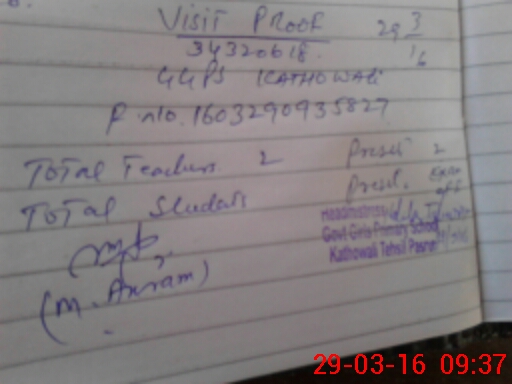 VISIT PROOF 29 3/16
34320618
GGPS KATHOWALI
P. no. 1603290935827
Total Teachers 2 Preset 2
Total Students Preset.
Headmistress
Govt Girls Primary School
Kathowali Tehsil Pasrur
(M. Akram)
29-03-16 09:37